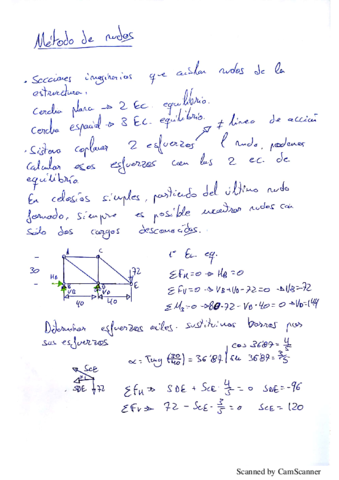 Método de nudos
· Secciones imaginarias que aislan nudos de la
estructura.
Cercha plana → 2 Ec. equilibrio.
Cercha espacial → 3 Ec. equilibrio.
≠ línea de acción
· Sistema coplanar 2 esfuerzos 1 nudo, podemos
calcular esos esfuerzos con las 2 ec. de
equilibrio
En celosías simples, partiendo del último nudo
formado, siempre es posible encontrar nudos con
solo dos cargas desconocidas.
A C
30
72
E
40 40
1º Ec. eq.
ΣFH=0 → HB=0
ΣFV=0 → VB+VD-72=0 → VB=-72
80·72 - VD·40=0 → VD=144
Determinar esfuerzos axiles. sustituimos barras por
sus esfuerzos
SCE
SDE 72
α = 36'87 cos 36'87 = 4/5
sen 36'87 = 3/5
ΣFH → SDE + SCE 4/5 = 0 SDE = -96
ΣFV → 72 - SCE · 3/5 = 0 SCE = 120
Scanned by CamScanner